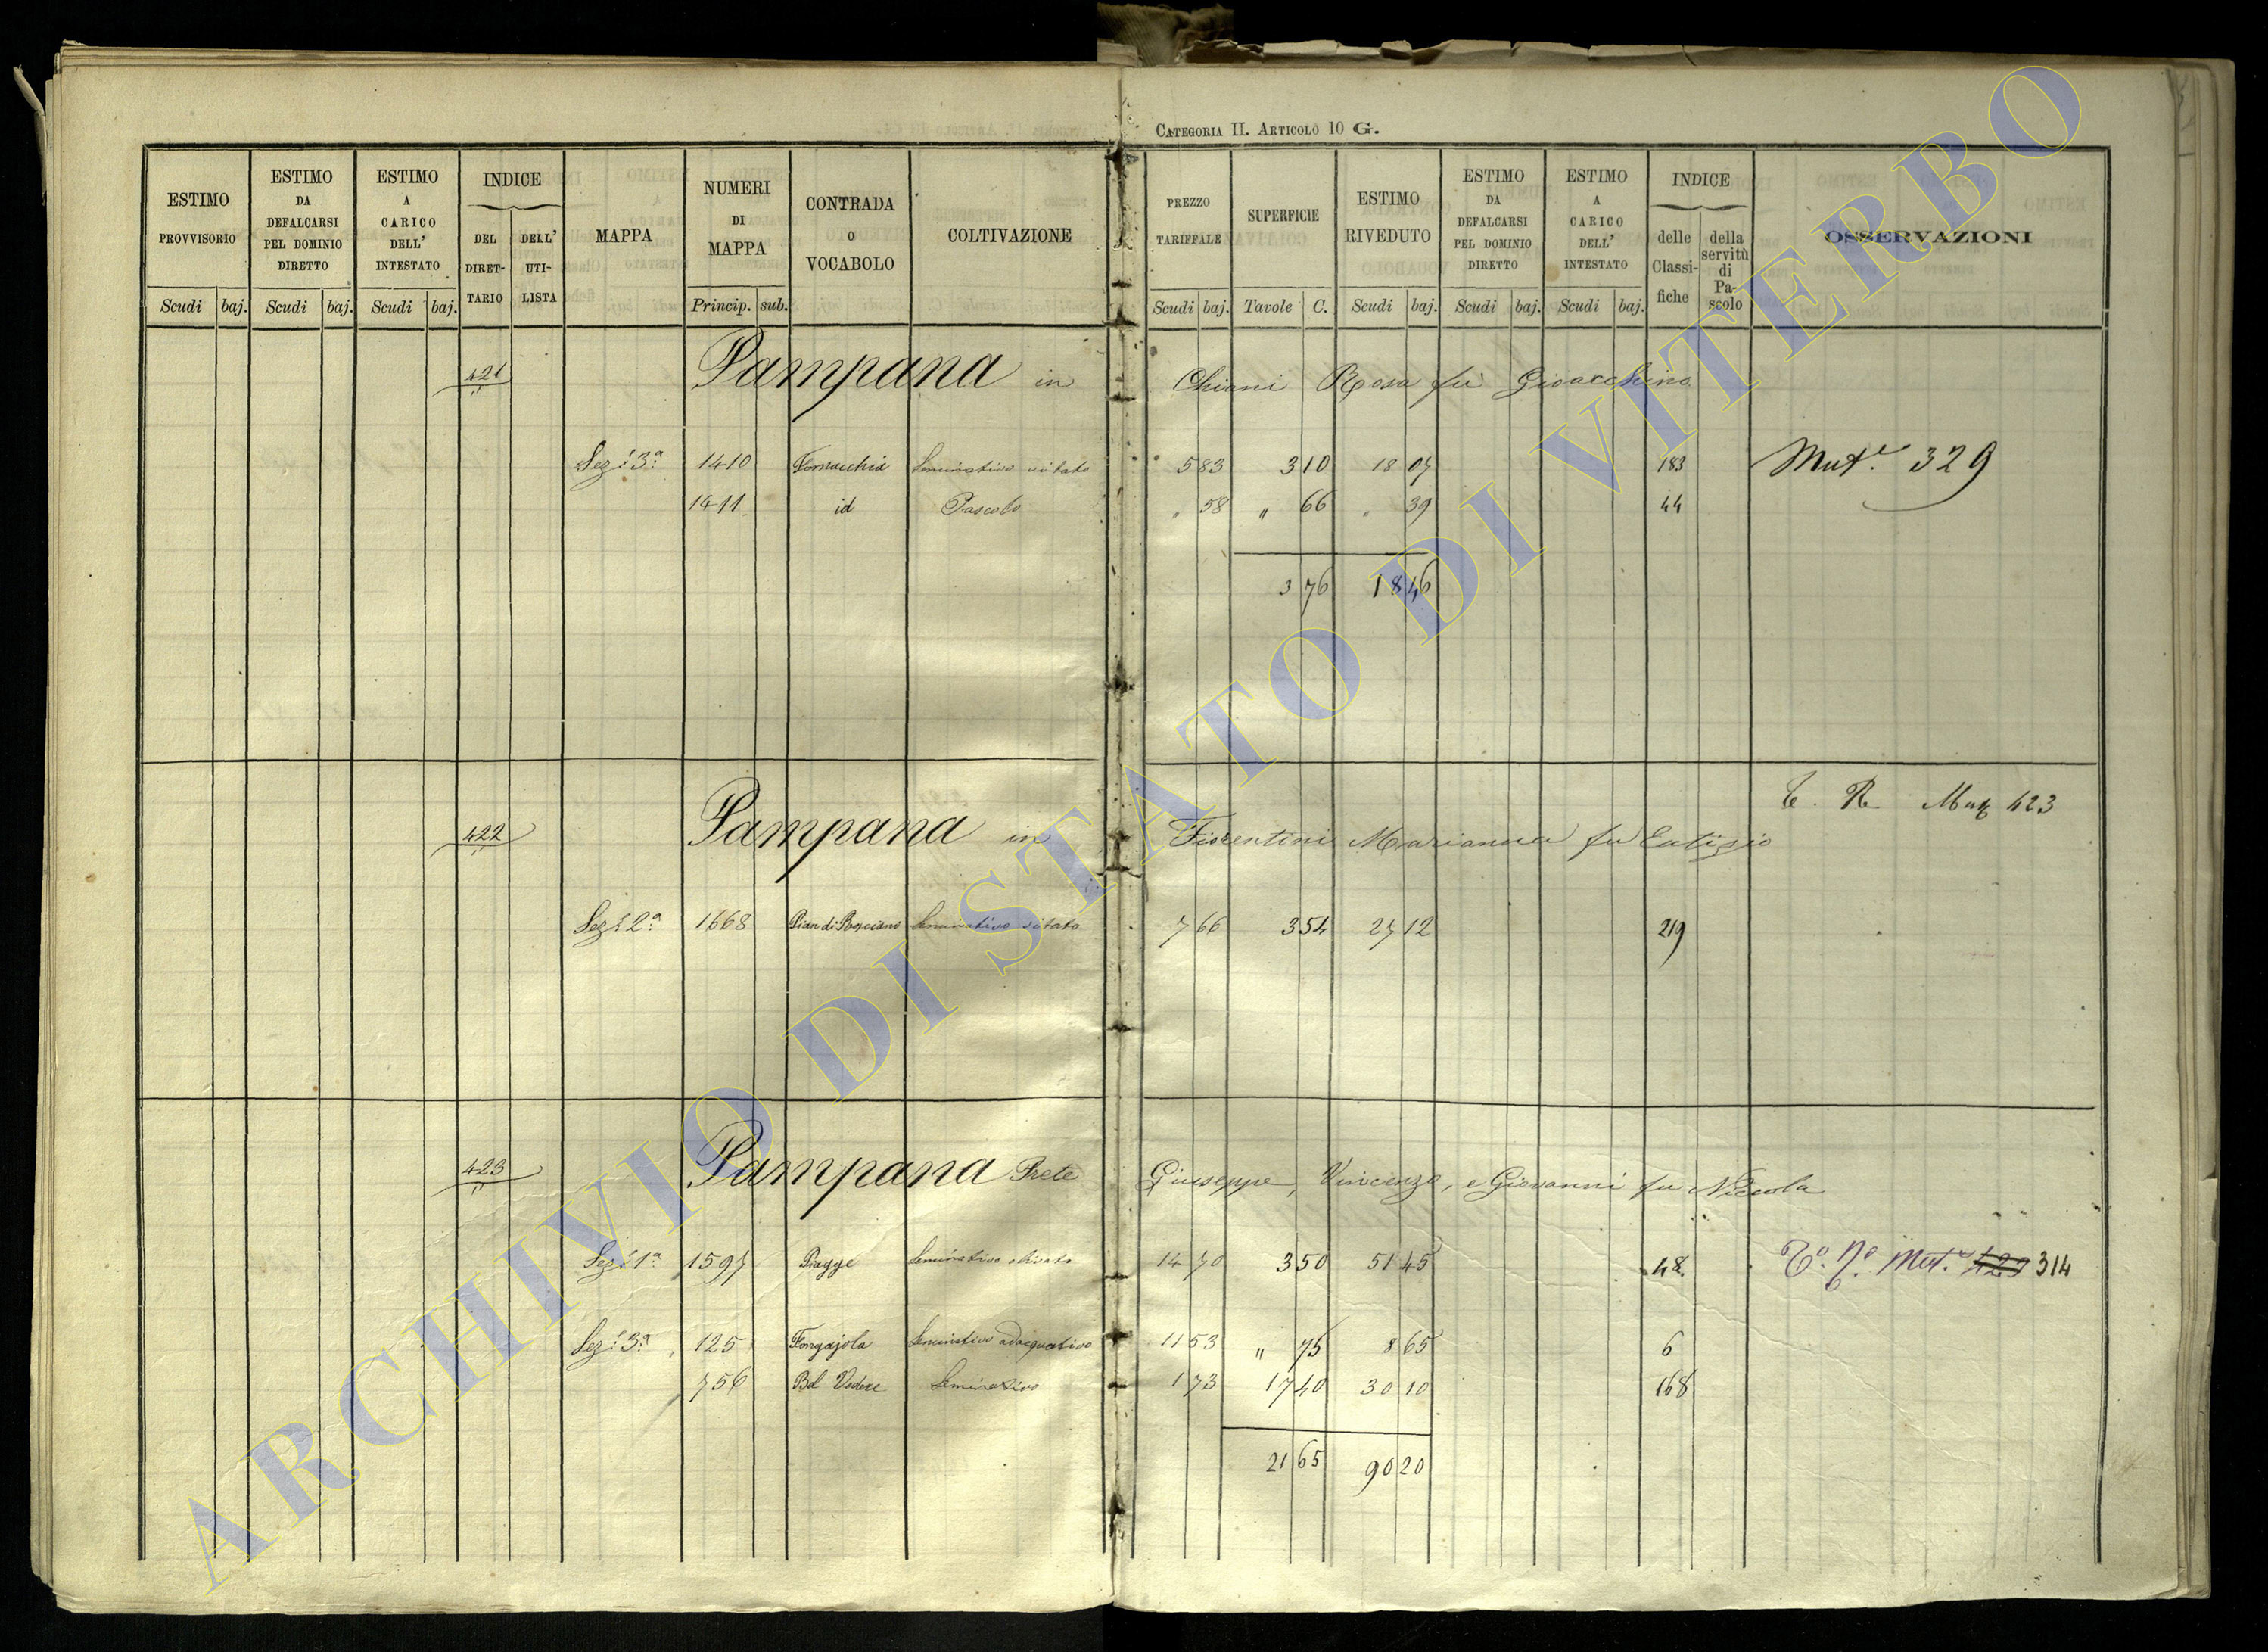 CATEGORIA II. ARTICOLO 10 G.
ESTIMO PROVVISORIO Scudi baj.
ESTIMO DA DEFALCARSI PEL DOMINIO DIRETTO Scudi baj.
ESTIMO A CARICO DELL' INTESTATO Scudi baj.
INDICE DEL DIRET-TARIO DELL' UTI-LISTA
MAPPA
NUMERI DI MAPPA Princip. sub.
CONTRADA O VOCABOLO
COLTIVAZIONE
PREZZO TARIFFALE Scudi baj.
SUPERFICIE Tavole C.
ESTIMO RIVEDUTO Scudi baj.
ESTIMO DA DEFALCARSI PEL DOMINIO DIRETTO Scudi baj.
ESTIMO A CARICO DELL' INTESTATO Scudi baj.
INDICE delle Classi-fiche della servitù di Pa-scolo
OSSERVAZIONI
421 Pampana in Chiani Rosa fù Gioacchino
Sez: 3a 1410 Seminativo vitato 5 83 3 10 18 07 183 Mut. 329
1411 id Pascolo " 58 " 66 " 39 44
3 76 18 46
T. R. Mut 423
422 Pampana in Fiorentini Marianna fu Eutizio
Sez: 2a 1668 Seminativo vitato 7 66 3 54 27 12 219
423 Pampana Prete Giuseppe, Vincenzo, e Giovanni fu Niccola
Sez: 1a 1597 Piagge Seminativo olivato 14 70 3 50 51 45 48 To. No. Mut. 314
Sez: 3a 125 Seminativo adacquativo 11 53 " 75 8 65 6
756 Bel Vedere Seminativo 1 73 17 40 30 10 168
21 65 90 20
ARCHIVIO DI STATO DI VITERBO